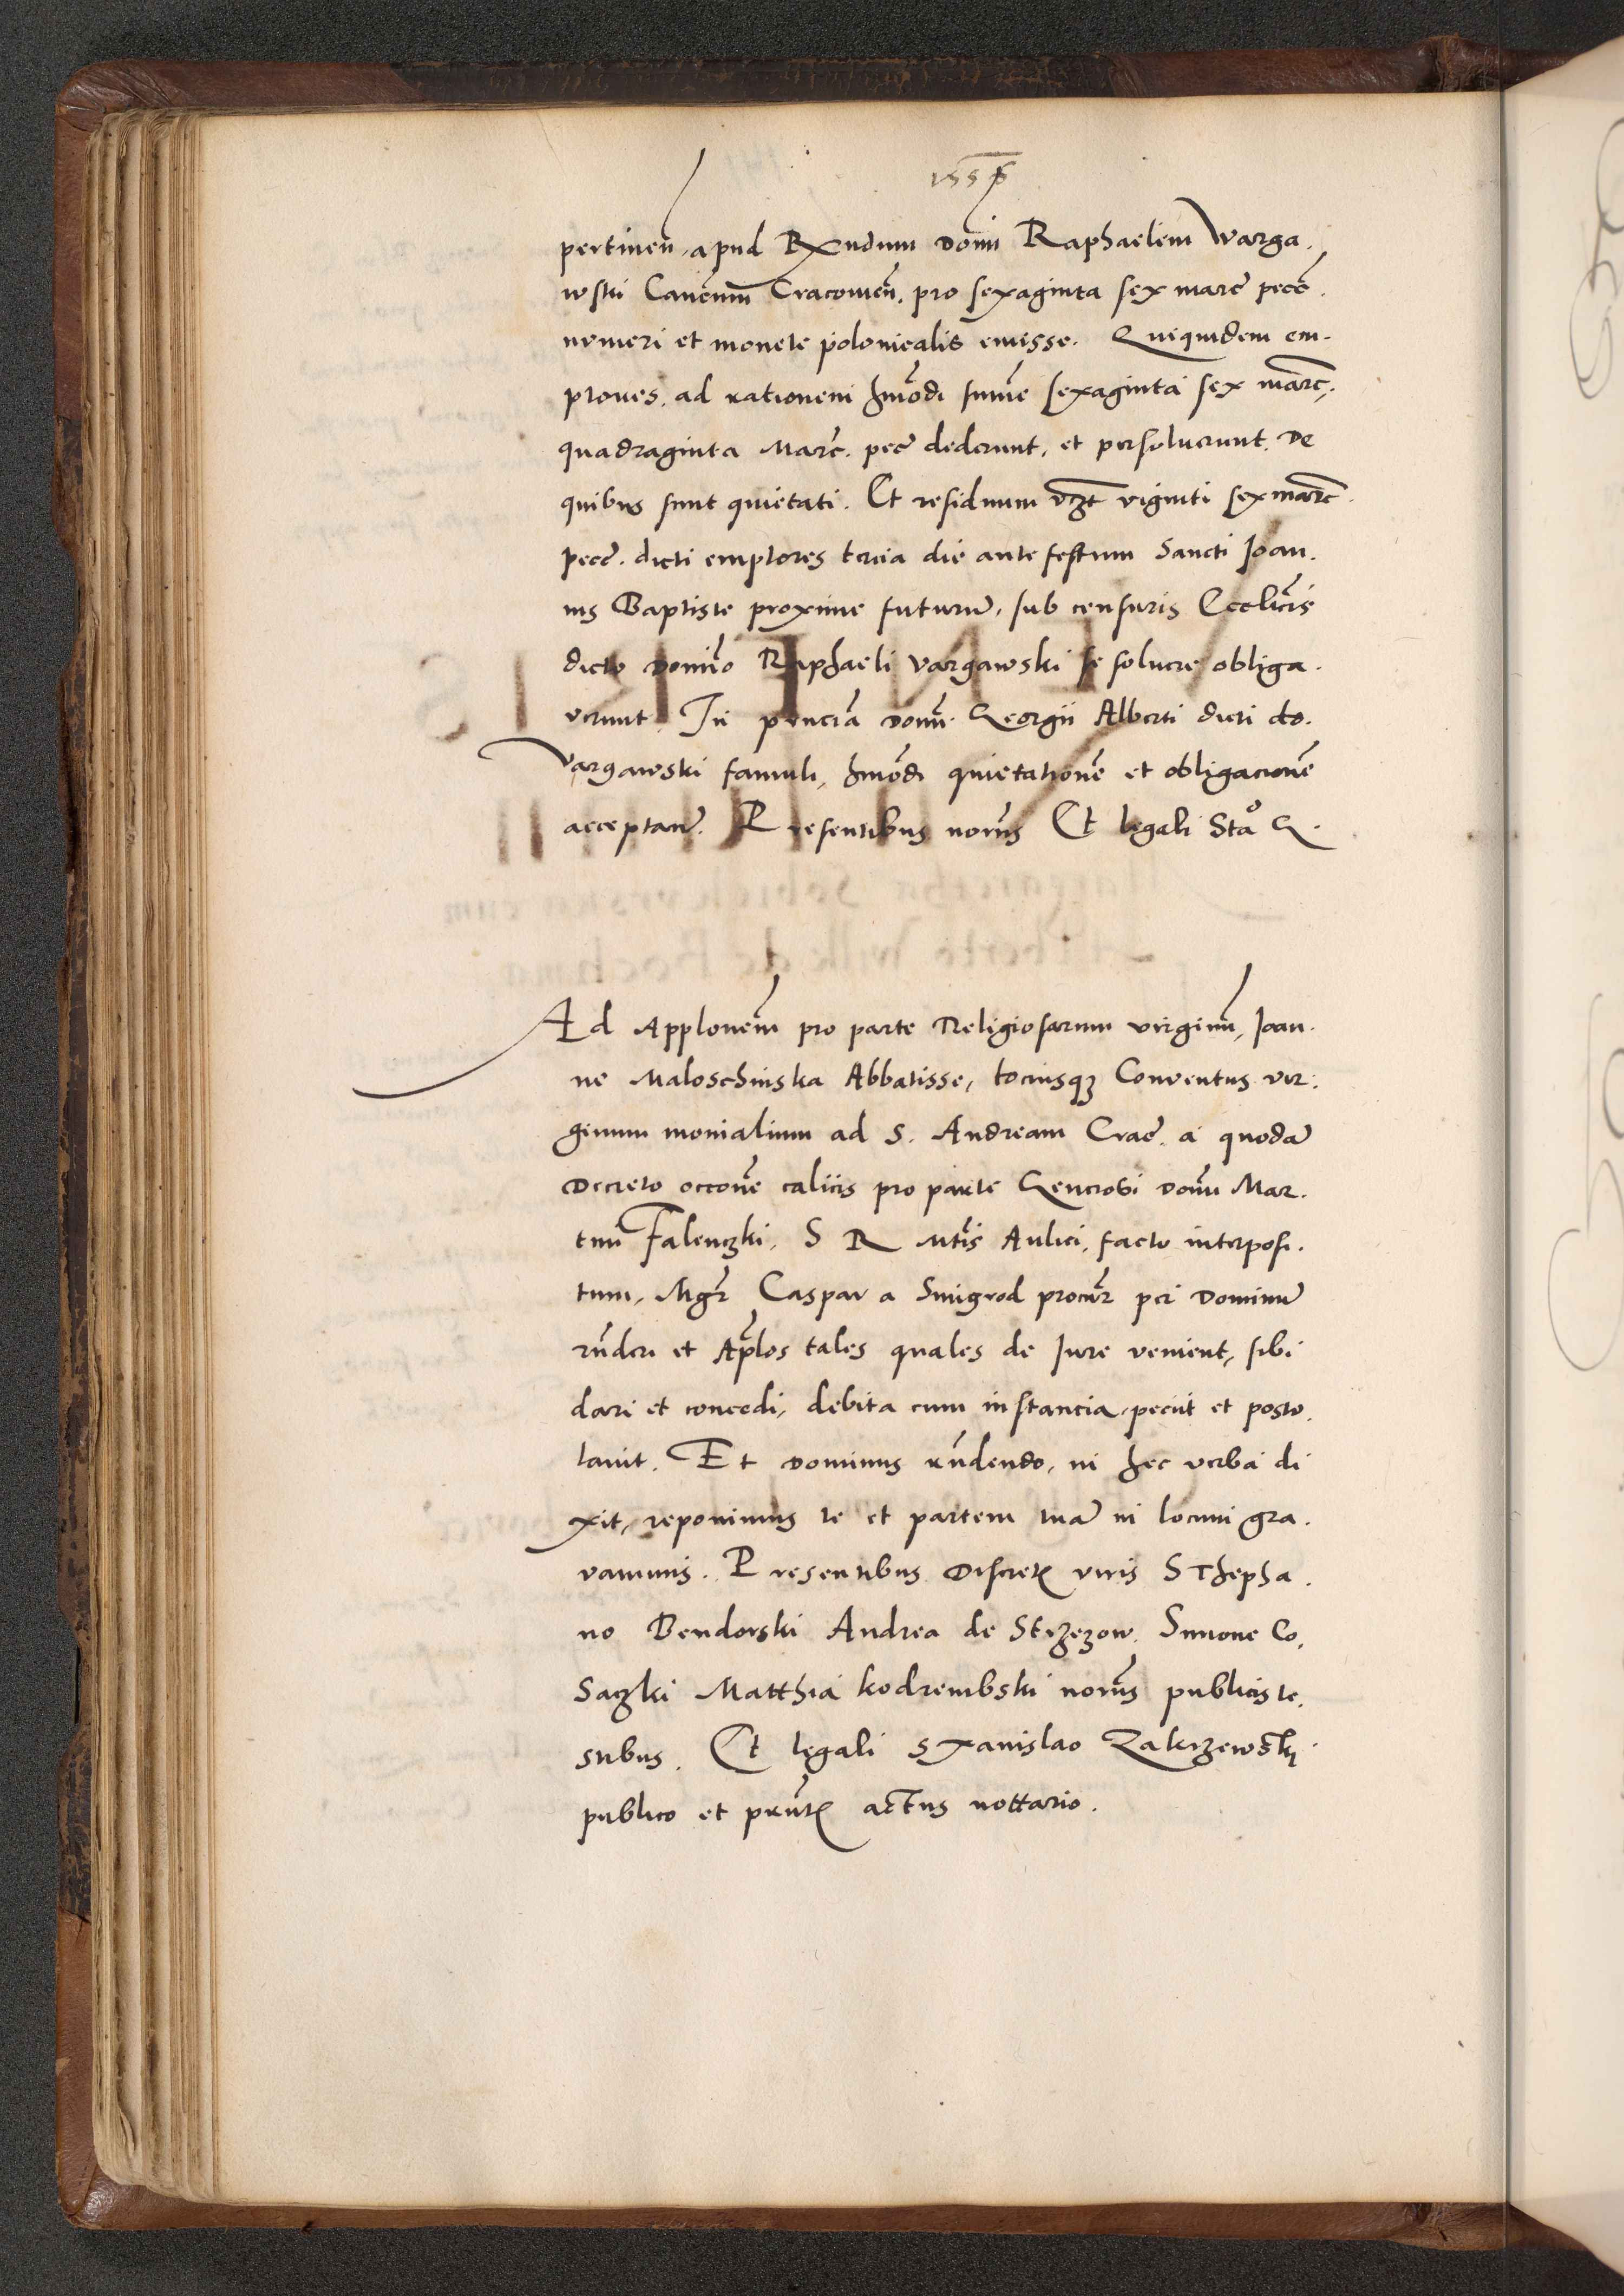 pertinen̄ apud Rx̄ndum Dom̄ Raphaelem Warga.
wski Canc̄num Cracouien̄. pro sexaginta sex marc̄ pecc̄.
numeri et monete polonicalis emisse. Quiquidem em.
ptores. ad rationem hm̄ōdi sum̄e sexaginta sex mārc.
quadraginta Marc̄. pec̄ dederunt, et persoluerunt. De
quibus sunt quietati. Et residuum vz̄t viginti sex mārc.
pecc̄. dicti emptores tercia die ante festum Sancti Joan.
nis Baptiste proxime futurū, sub censuris Eccl̄icis
dicto Domīo Raphaeli Vargawski se soluere obliga.
verunt. In pn̄cia Domī. Georgii Alberti dicti do.
Vargawski famuli, hm̄ōdi quietationē et obligacionē
acceptan̄. Presentibus nor̄iis Et legali Stao Z.
Ad Applonem̄ pro parte Religiosarum virginū, Joan.
ne Maloschinska Abbatisse, tociusqꝫ Conventus vir.
ginum monialium ad S. Andream Crac̄. a quodā
Decreto occōne calicis pro parte Generosi Domī Mar.
tini Falenczki. S R Mt̄is Aulici, facto interposi.
tum, Mgr̄ Caspar a Smigrod procur̄ per Dominū
rn̄deri et Ap̄los tales quales de Jure venient, sibi
dari et concedi, debita cum instancia peciit et posto.
lavit. Et Dominus rn̄dendo, in hec verba di
xit, reponimus te et partem tuā in locum gra.
vaminis. Presentibus Discretis viris Sthepha.
no Bendorski Andrea de Strzezow. Simone Co.
Saczki Matthia kodrembski nor̄iis publicis te.
stibus. Et legali Stanislao Zakrzewski
publico et pn̄tis actus nottario.